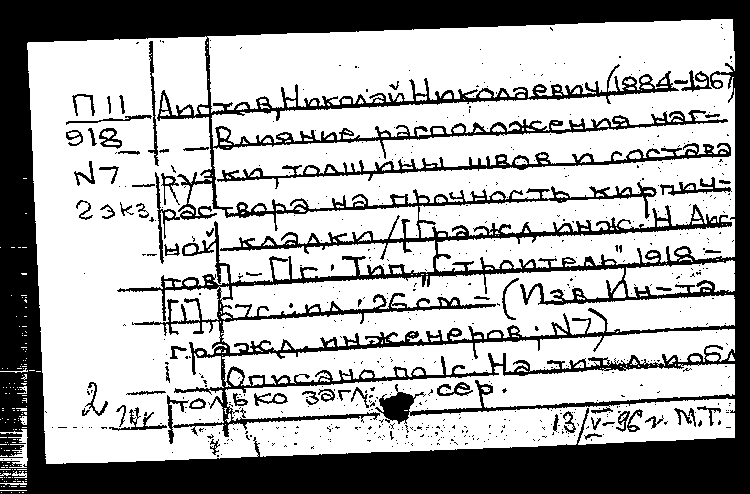 П 11 Аистов, Николай Николаевич (1884-196
918 Влияние расположения наг-
N7 рузки, толщины швов и состава
2 экз. раствора на прочность кирпич-
ной кладки / [Гражд. инж. Н. Аис-
тов]. - Пг.: Тип. "Строитель", 1918 -
[1], 67с.: ил.; 26 см - (Изв. Ин-та
гражд. инженеров; N7).
Описано по 1с. На тит. л. и обл
только загл. сер.
2
13/V-96 г. М.Т.